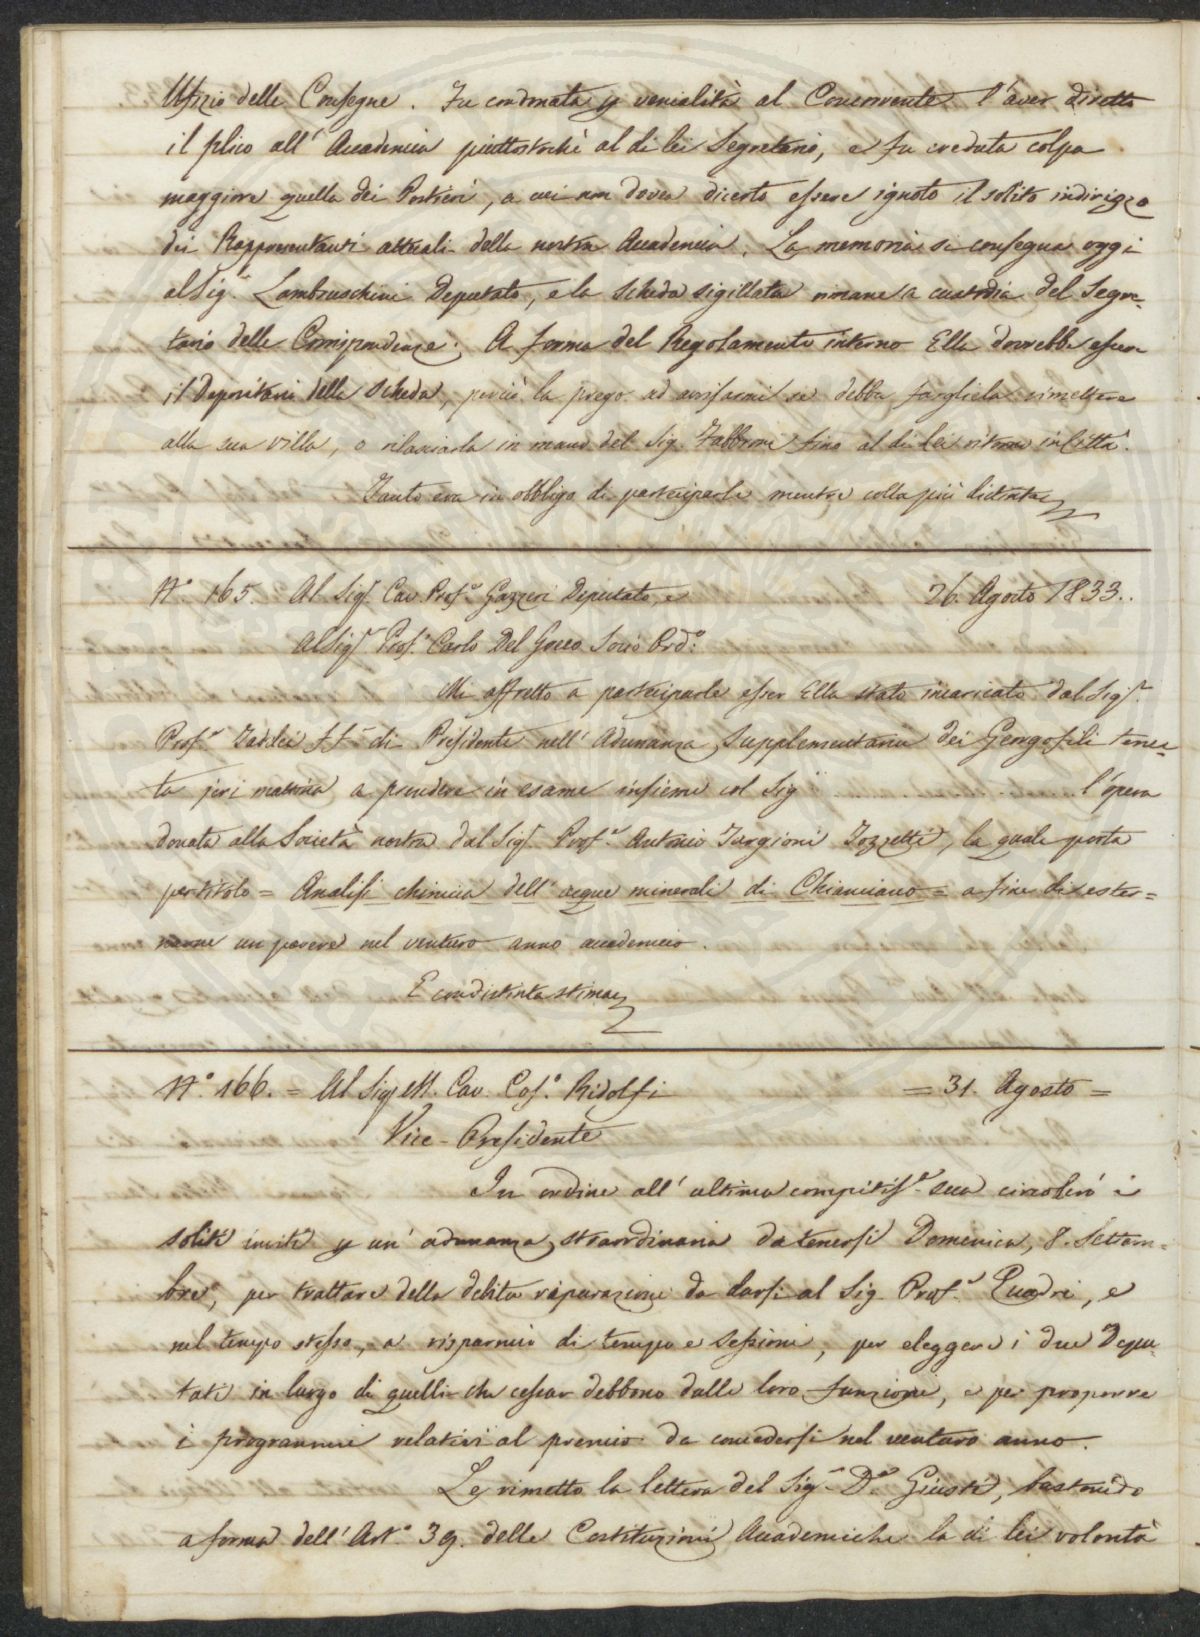 Ufizio delle Consegne. Fu condonata p venialità al Concorrente l'aver diretto
il plico all'Accademia piuttostochè al di lei Segretario, e fu creduta colpa
maggiore quella dei Portieri, a cui non dovea dicerto essere ignoto il solito indirizzo
dei Rappresentanti attuali della nostra Accademia. La memoria si consegna oggi
al Sig.r Lambruschini Deputato, e la scheda sigillata rimane a custodia del Segre-
tario delle Corrispondenze. A forma del Regolamento interno Ella dovrebbe essere
il Depositario della scheda, perciò la prego ad avvisarmi se debba fargliela rimettere
alla sua villa, o rilasciarla in mano del Sig. Fabbroni fino al di lei ritorno in Città.
Tanto era in obbligo di parteciparle mentre colla più distinta
N.º 165. Al Sig.r Cav. Prof.e Gazzeri Deputato, e 26. Agosto 1833..
Al Sig.r Prof.e Carlo Del Greco Socio Ord.º
Mi affretto a parteciparle esser Ella stato incaricato dal Sig.r
Prof.e Taddei ff.e di Presidente nell'Adunanza Supplementaria dei Georgofili tenu-
ta jeri mattina a prendere in esame insieme col Sig.r .......... l'opera
donata alla Società nostra dal Sig.r Prof.e Antonio Targioni Tozzetti, la quale porta
per titolo = Analisi chimica dell'acque minerali di Chianciano = a fine di ester=
narne un parere nel venturo anno accademico.
E con distinta stima
N.º 166. = Al Sig.r M. Cav. Cos.º Ridolfi = 31. Agosto =
Vice-Presidente
In ordine all'ultima compitiss.a sua circolerò i
soliti inviti p un'adunanza straordinaria da tenersi Domenica, 8. Settem-
bre, per trattare della debita riparazione da darsi al Sig. Prof.e Quadri, e
nel tempo stesso, a risparmio di tempo e sessioni, per eleggere i due Depu-
tati in luogo di quelli che cessar debbono dalle loro funzioni, e per proporre
i programmi relativi al premio da concedersi nel venturo anno.
Le rimetto la lettera del Sig.r D.e Giusti, bastando
a forma dell'Art.º 39. delle Costituzioni Accademiche la di lei volontà